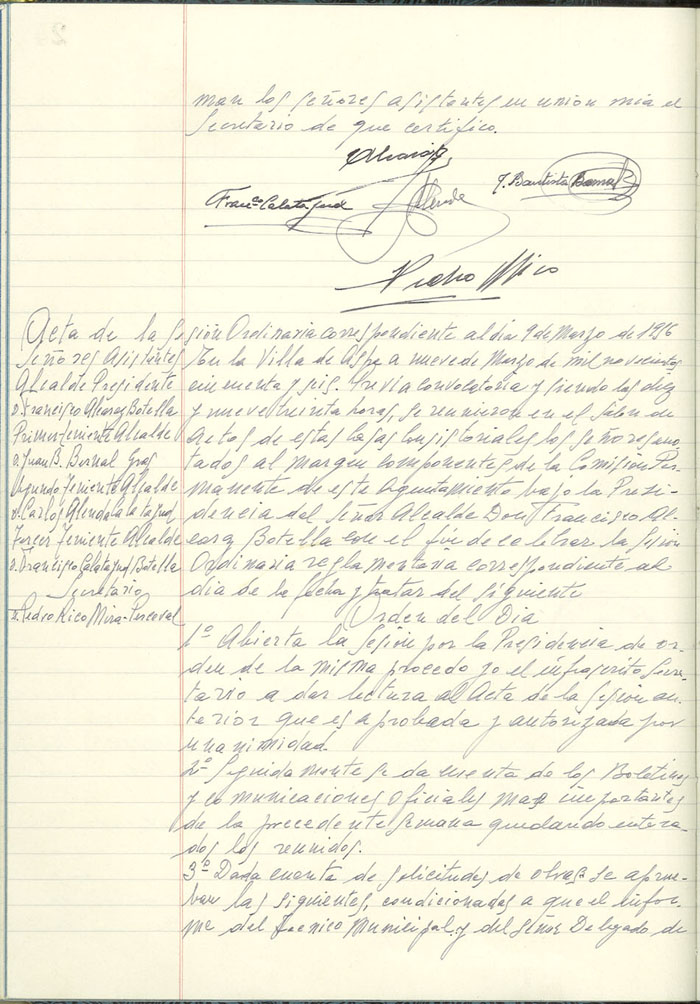 man los señores asistentes en union mia el
Secretario de que certifico.
Alcaraz
Franco Calatayud
J. Bautista Bernal
Pedro Rico
Acta de la Sesión Ordinaria correspondiente al día 9 de Marzo de 1956
Señores Asistentes
Alcalde Presidente
D. Francisco Alcaraz Botella
Primer Teniente Alcalde
D. Juan B. Bernal
Segundo Teniente Alcalde
D. Carlos
Tercer Teniente Alcalde
D. Francisco Calatayud Botella
Secretario
D. Pedro Rico Mira-Perceval
En la Villa de Aspe a nueve de Marzo de mil novecientos
cincuenta y seis. Previa convocatoria y siendo las diez
y nueve treinta horas, se reunieron en el Salon de
Actos de estas Casas Consistoriales los señores ano-
tados al margen componentes de la Comisión Per-
manente de este Ayuntamiento bajo la Presi-
dencia del Señor Alcalde Don Francisco Al-
caraz Botella con el fin de celebrar la Sesión
Ordinaria reglamentaria correspondiente al
día de la fecha y tratar del siguiente
Orden del Dia
1º Abierta la Sesión por la Presidencia de or-
den de la misma procedo yo el infrascrito Secre-
tario a dar lectura al Acta de la Sesión an-
terior que es aprobada y autorizada por
unanimidad.
2º Seguidamente se da cuenta de los Boletines
y comunicaciones Oficiales mas importantes
de la precedente semana quedando entera-
dos los reunidos.
3º Dada cuenta de solicitudes de obras se aprue-
ban las siguientes, condicionadas a que el infor-
me del Tecnico Municipal y del Señor Delegado de